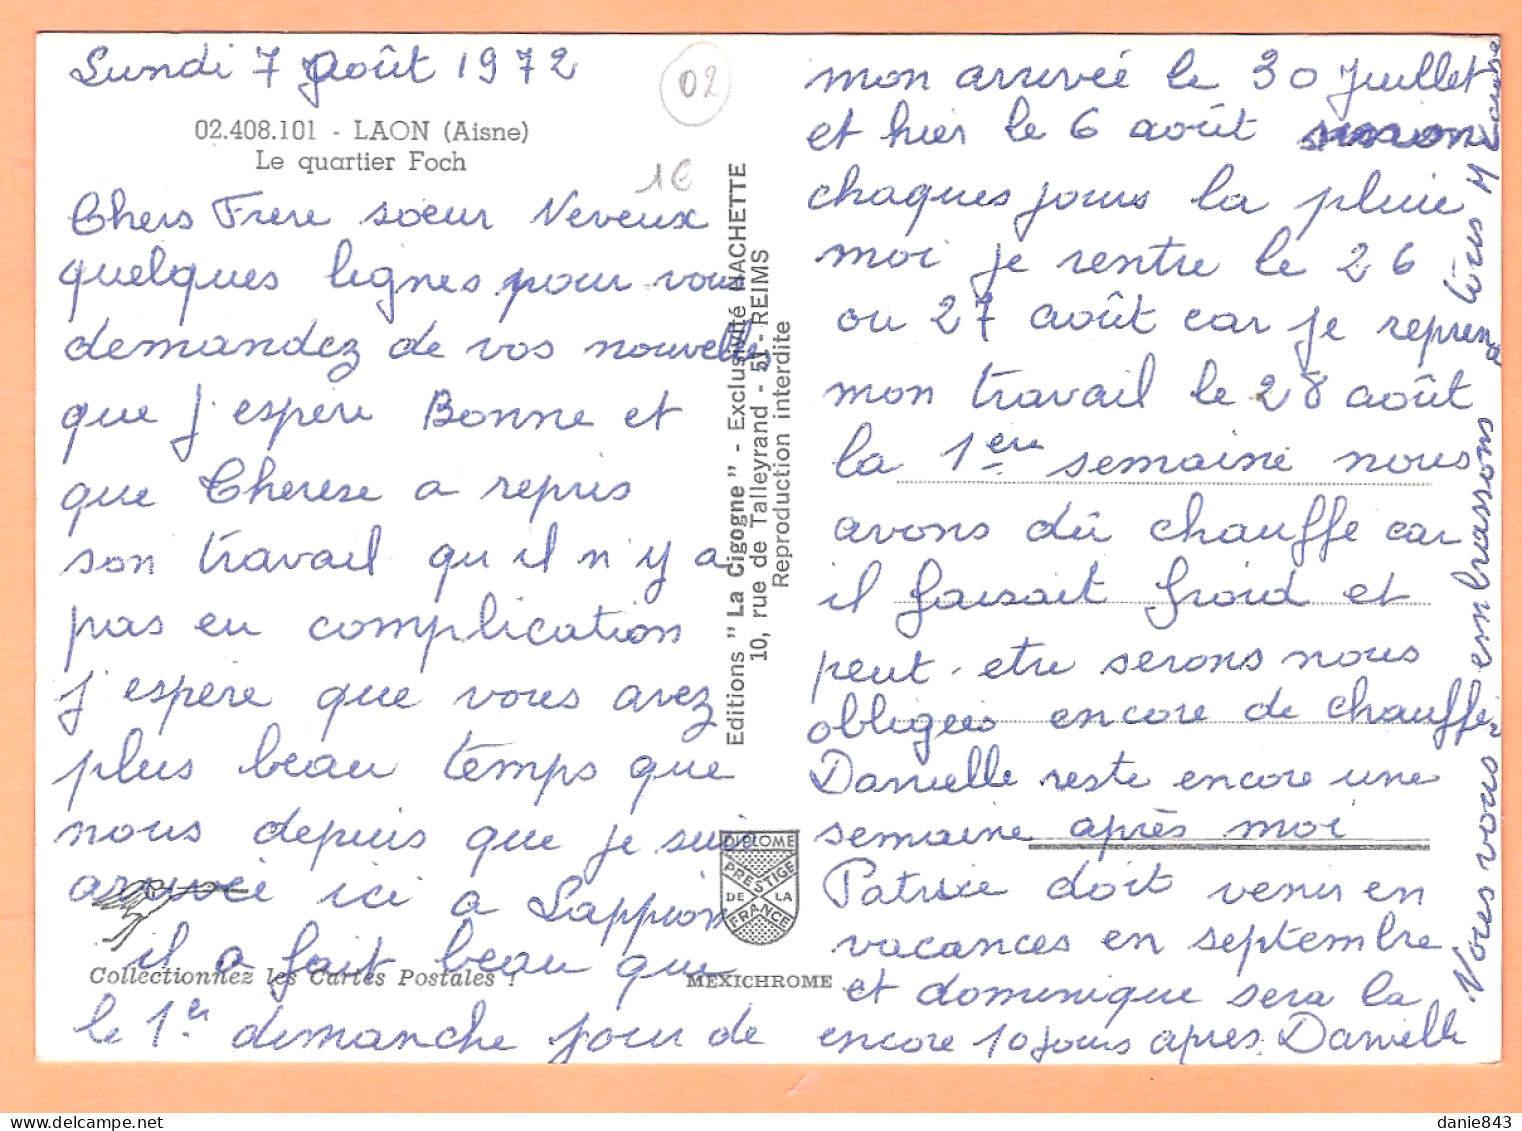 Lundi 7 Août 1972
02
02.408.101 - LAON (Aisne)
Le quartier Foch
1€
Chers Frere soeur Neveux
quelques lignes pour vous
demandez de vos nouvelles
que j'espere Bonne et
que Therese a repris
son travail qu il n'y a
pas eu complication
j'espere que vous avez
plus beau temps que
nous depuis que je suis
arrivée ici a Lappion
il a fait beau que
le 1er dimanche jour de
Collectionnez les Cartes Postales !
Editions " La Cigogne " - Exclusivité HACHETTE
10, rue de Talleyrand - 51 - REIMS
Reproduction interdite
DIPLOME
PRESTIGE
DE LA
FRANCE
MEXICHROME
mon arrivée le 30 Juillet
et hier le 6 août
chaques jours la pluie
moi je rentre le 26
ou 27 août car je reprend
mon travail le 28 août
la 1ere semaine nous
avons dû chauffe car
il faisait froid et
peut-etre serons nous
obligees encore de chauffer
Danielle reste encore une
semaine après moi
Patrice doit venir en
vacances en septembre
et dominique sera la
encore 10 jours apres Danielle
Nous vous embrassons tous
danie843